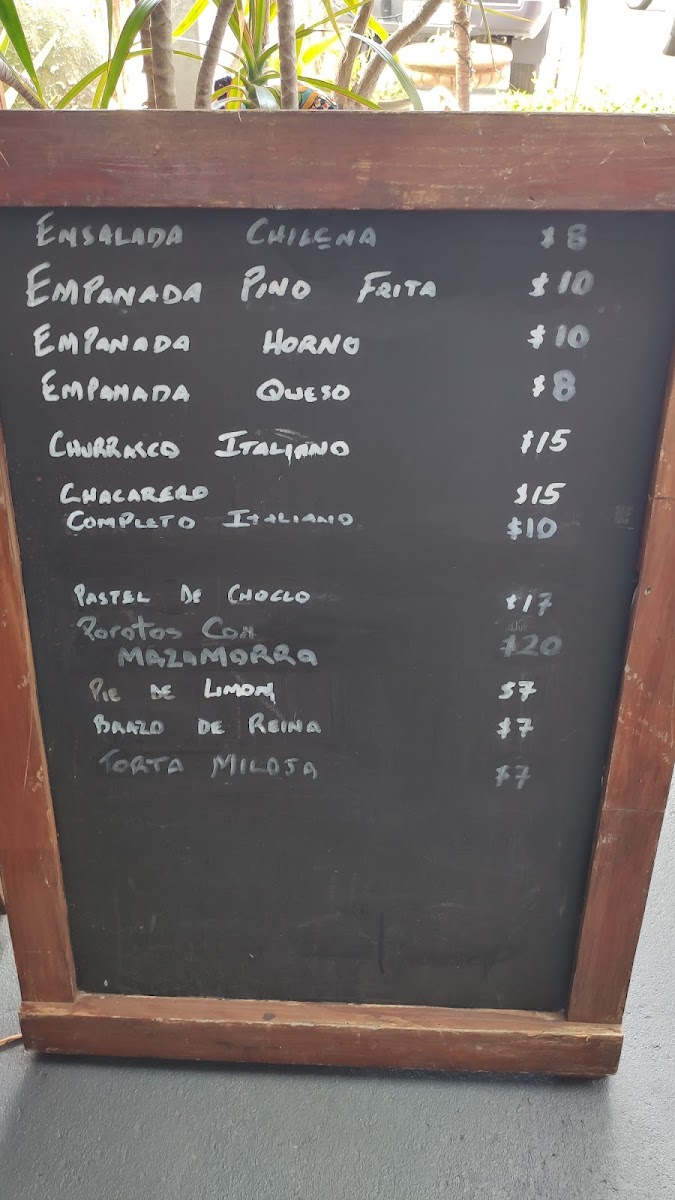 ENSALADA CHILENA $8
EMPANADA PINO FRITA $10
EMPANADA HORNO $10
EMPANADA QUESO $8
CHURRASCO ITALIANO $15
CHACARERO $15
COMPLETO ITALIANO $10
PASTEL DE CHOCLO $17
POROTOS CON
MAZAMORRA $20
PIE DE LIMON $7
BRAZO DE REINA $7
TORTA MILOJA $7